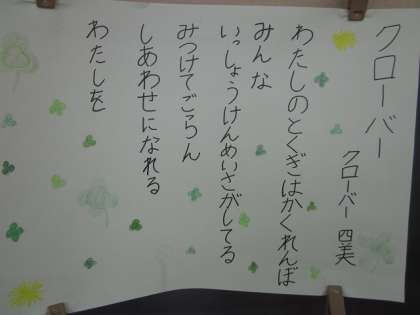 クローバー
クローバー 四美
わたしのとくぎはかくれんぼ
みんな
いっしょうけんめいさがしてる
みつけてごらん
しあわせになれる
わたしを